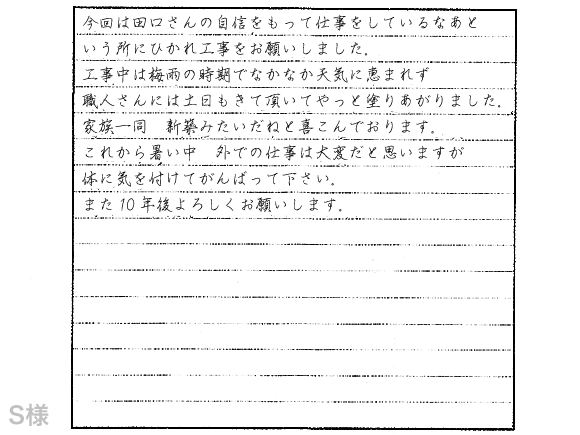 今回は田口さんの自信をもって仕事をしているなあと
いう所にひかれ工事をお願いしました。
工事中は梅雨の時期でなかなか天気に恵まれず
職人さんには土日もきて頂いてやっと塗りあがりました。
家族一同　新築みたいだねと喜こんでおります。
これから暑い中　外での仕事は大変だと思いますが
体に気を付けてがんばって下さい。
また10年後よろしくお願いします。
S様